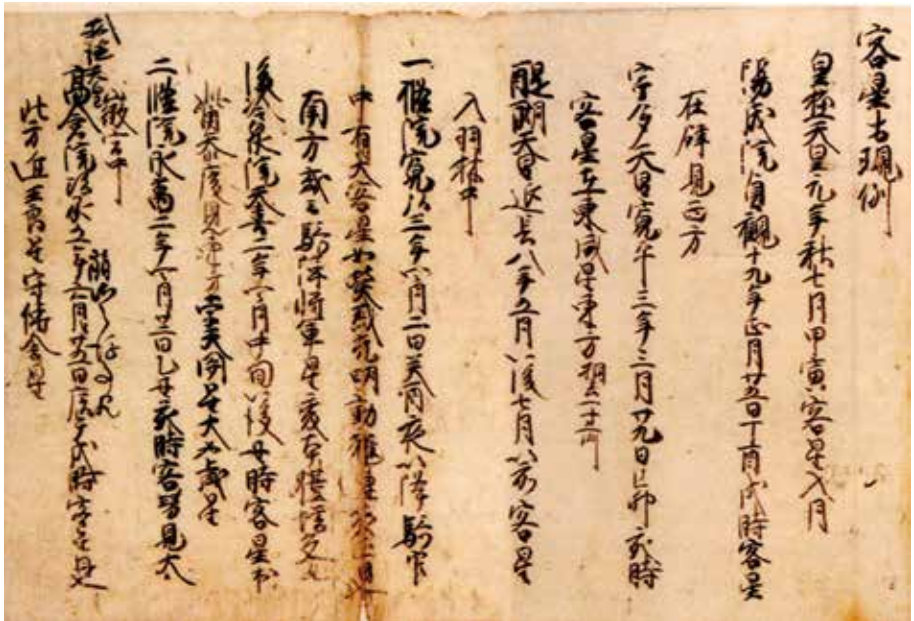 客星古現例
皇極天皇元年秋七月甲寅客星入月
陽成院貞觀十九年正月廿五日丁酉戌時客星
在辟見西方
宇多天皇寛平三年三月廿九日己卯亥時
客星在東咸星東方相去一寸所
醍醐天皇延長八年五月以後七月以前客星
入羽林中
一條院寛弘三年四月二日癸酉夜以降騎官
中有大客星如熒惑光明動耀連夜正見
南方或云騎陣將軍星變本體増光
後冷泉院天喜二年四月中旬以後丑時客星出
觜參度見東方孛天關星大如歳星
二條院永萬二年四月廿二日乙丑亥時客星見大
微宮中
高倉院治承五年六月廿五日庚午戌時客星見
北方近王良星守傳舍星